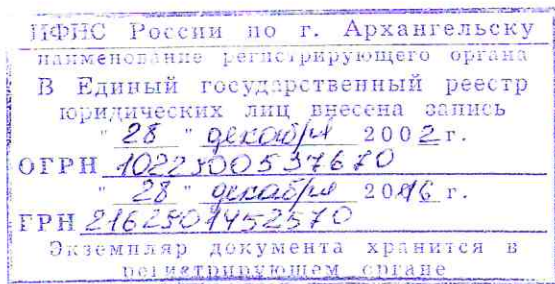 ИФНС России по г. Архангельску
наименование регистрирующего органа
В Единый государственный реестр
юридических лиц внесена запись
" 28 " декабря 2002 г.
ОГРН 1022900537670
" 28 " декабря 2016 г.
ГРН 2162901452570
Экземпляр документа хранится в
регистрирующем органе